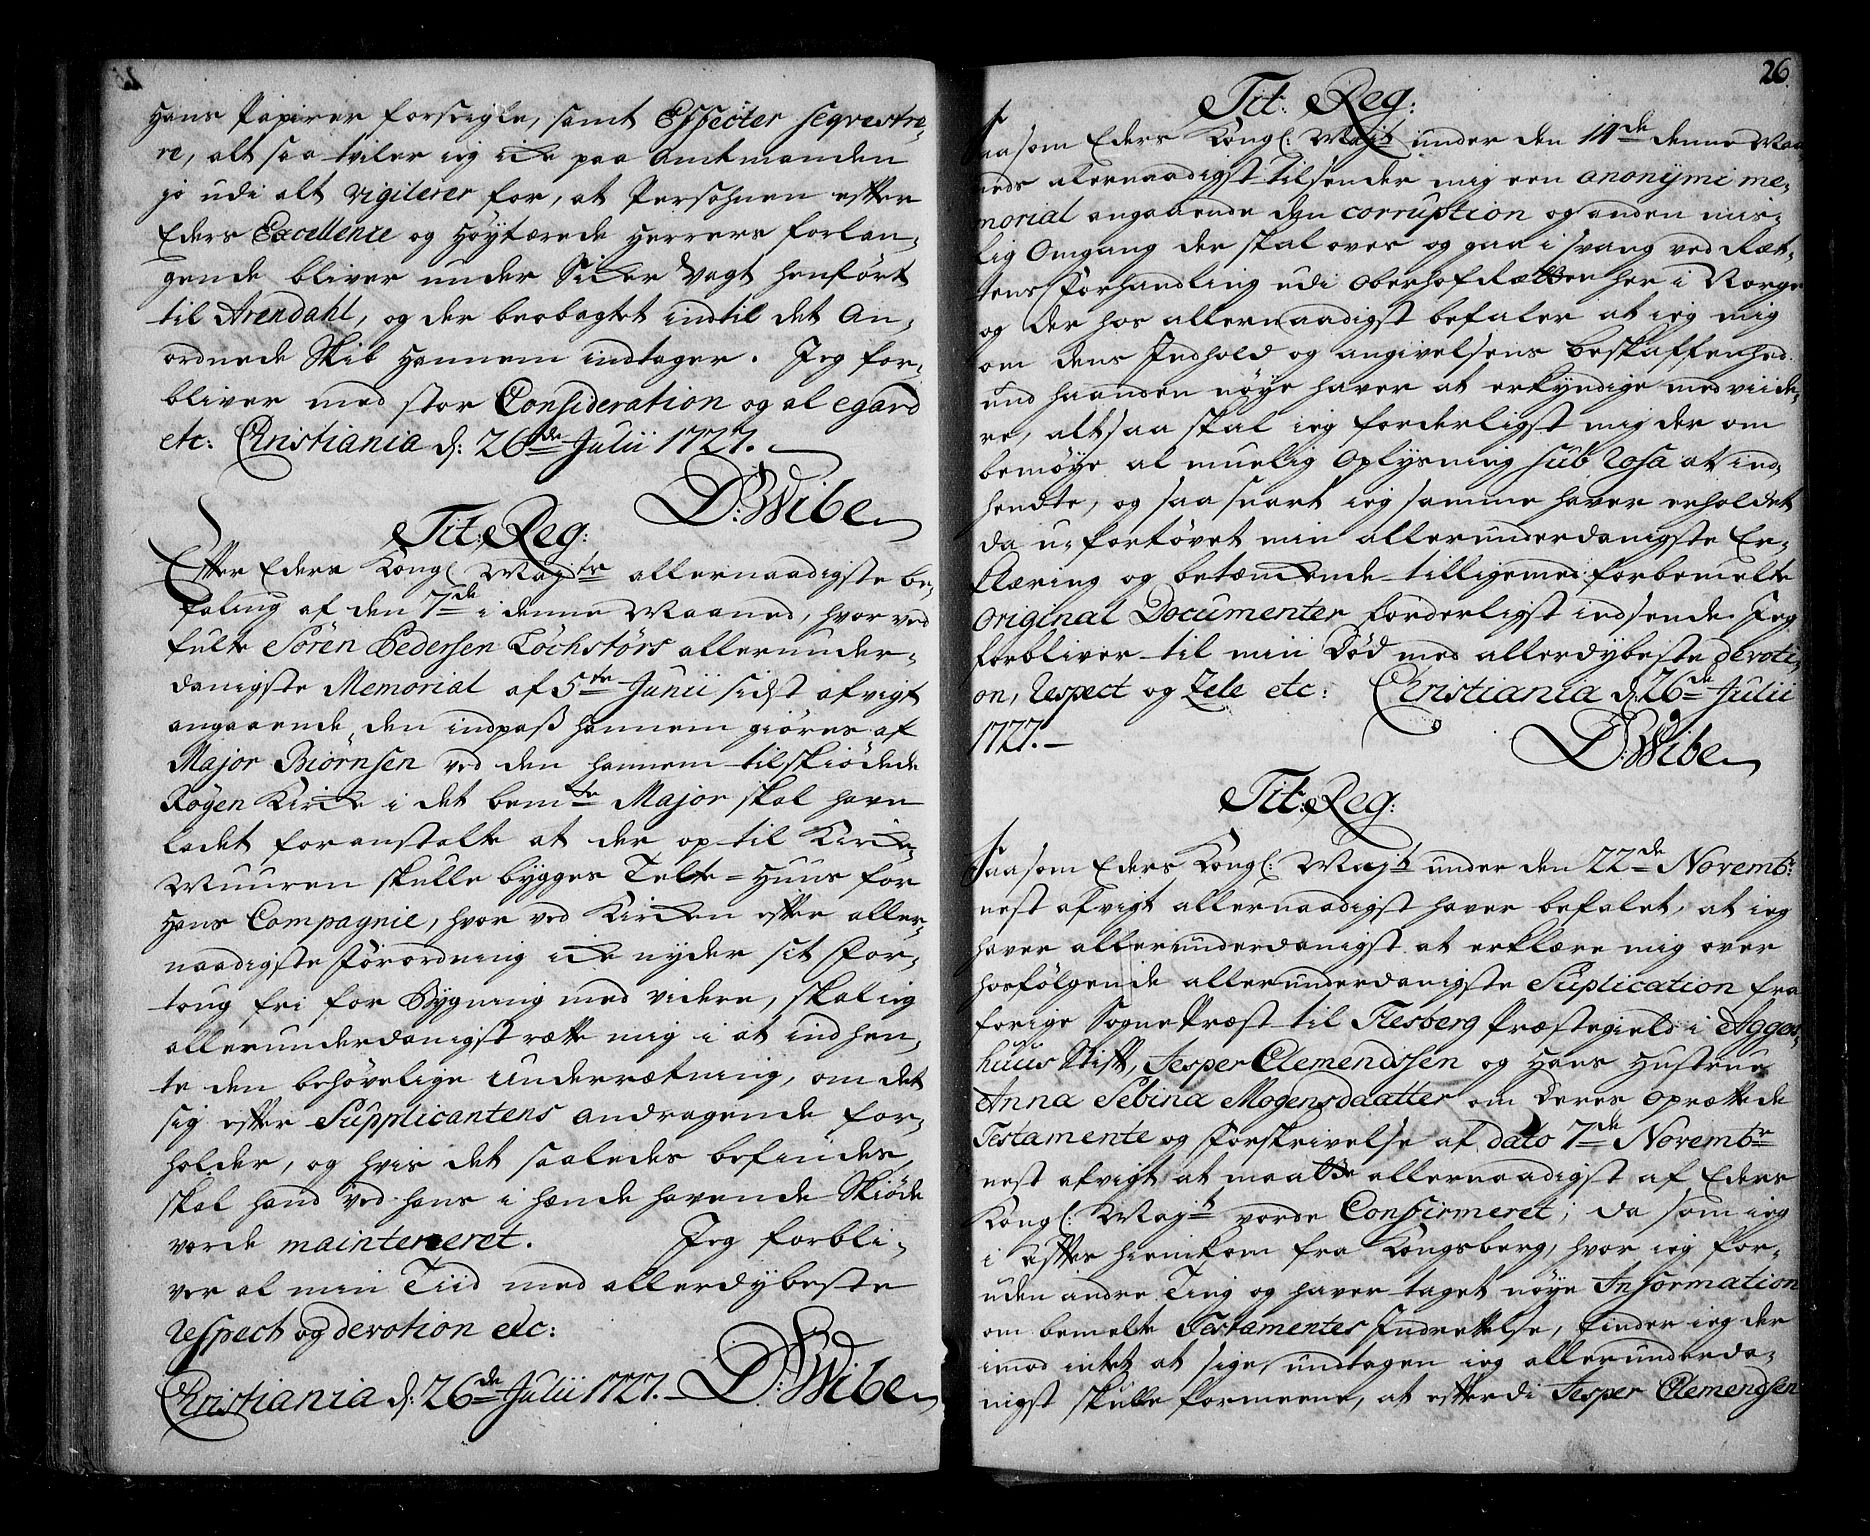 Hans Papirer forseigle, samt Effecter seqvestre-
re, alt saa tviler ieg icke paa Amtmanden
jo udi alt vigilerer for, at Persohnen efter
Eders Excellence og Höytærede Herrers forlan-
gende bliver under Sicker Vagt henfört
til Arendahl, og der beobagtet indtil det An-
ordnede Skib Hannem indtager. Jeg for-
bliver med stor Consideration og al egard
etc: Christiania d: 26de Julii 1727.
D: Wibe
Tit: Reg:
Efter Eders Kongl Mayts allernaadigste be-
faling af den 7de i denne Maaned, hvor ved
fulte Sören Pedersen Löchstörs allerunder-
danigste Memorial af 5te Junii sidst afvigt
angaaende den indpaß hannem giöres af
Major Biörnsen ved den hannem tilskiödede
Röyen Kirche i det bemte Major skal have
ladet foranstalte at der op til Kirche
Muuren skulle bygges Telte-Huus for
Hans Compagnie, hvor ved Kirchen efter aller-
naadigste Forordning icke nyder sit For-
toug fri for Bygning med videre, skal ieg
allerunderdanigst rætte mig i at indhen-
te den behövelige Underrætning, om det
sig efter Supplicantens andragende for-
holder, og hvis det saaledes befindes,
skal hand ved hans i hænde havende Skiöde
vorde mainteneret. Jeg forbli-
ver al min Tiid med allerdybeste
respect og devotion etc:
Christiania d: 26de Julii 1727. D: Wibe
26.
Tit: Reg:
Saasom Eders Kongl: Majts under den 14de denne Maa
neds allernaadigst tilsender mig een anonymi me-
morial angaaende den corruption og anden mis-
lig Omgang der skal over og gaa i svang ved Ræt-
tens Forhandling udi Oberhof Rætten her i Norge
og der hos allernaadigst befaler at ieg mig
om dens Indhold og angivelsens beskaffenhed
und haanden nöye haver at erkyndige med viide-
re, altsaa skal ieg forderligst mig der om
bemöye al muelig Oplysning sub rosa at ind-
hendte, og saa snart ieg samme haver erholdet
da u-fortövet min allerunderdanigste Er-
klæring og betænckende tilligemed forbemelte
Original Documenter forderligst indsende. Jeg
forbliver til min Död med allerdybeste devoti-
on, respect og Zele etc: Christiania d: 26de Julii
1727.
D: Wibe
Tit: Reg:
Saasom Eders Kongl: Majts under den 22de Novembr:
nest afvigt allernaadigst haver befalet, at ieg
haver allerunderdanigst at erklære mig over
hosfölgende allerunderdanigste Suplication fra
forige Sogne Præst til Flesberg Præstegield i Agger
huus Stift, Jesper Clemendssen og Hans Hustrue
Anna Sebina Mogensdaatter om deres Oprættede
Testamente og Forskrivelse af dato 7de Novembr
nest afvigt at maatte allernaadigst af Eders
Kongl: Majts vorde Confirmeret; da som ieg
i efter hiemkom fra Kongsberg, hvor ieg for-
uden andre Ting og haver taget nöye Information
om bemelte Testamentes Indrettelse, finder ieg der
imod intet at sige, undtagen ieg allerunderda-
nigst skulle formeene, at efterdi Jesper Clemendsen